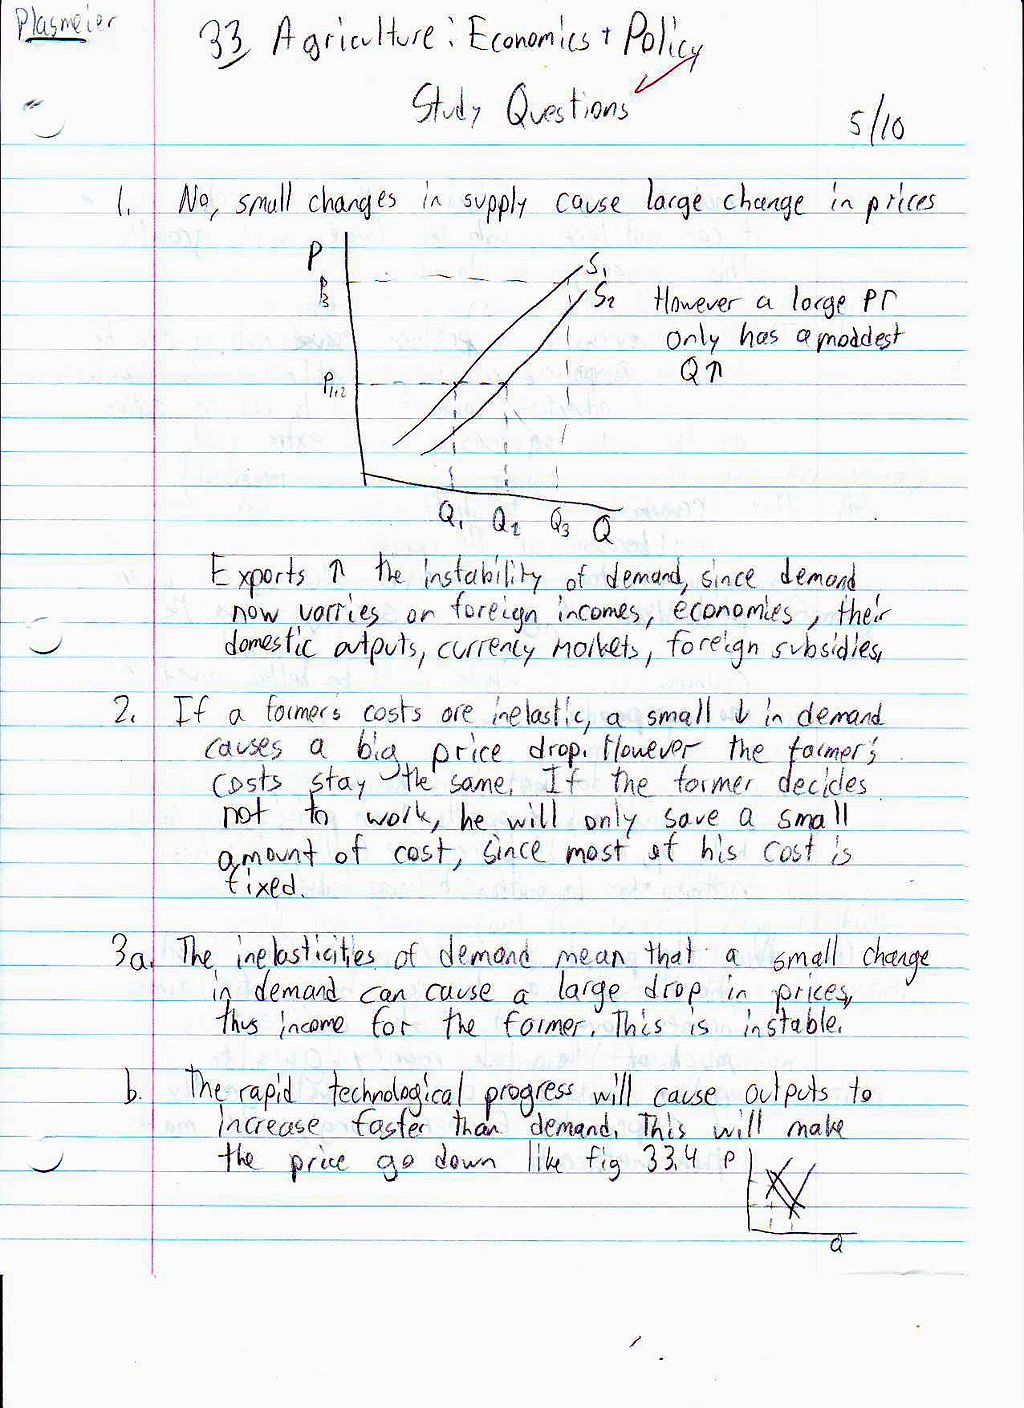 Plasmeier
33 Agriculture: Economics + Policy
Study Questions
5/10
1. No, small changes in supply cause large change in prices
P
P3
P1+2
S1
S2
However a large P↑
only has a moddest
Q↑
Q1 Q2 Q3 Q
Exports ↑ the instability of demand, since demand
now varries on foreign incomes, economies, their
domestic outputs, currency markets, foreign subsidies,
2. If a farmers costs are inelastic, a small ↓ in demand
causes a big price drop. However the farmer's
costs stay the same. If the farmer decides
not to work, he will only save a small
amount of cost, since most of his cost is
fixed.
3a. The inelasticities of demand mean that a small change
in demand can cause a large drop in prices,
thus income for the farmer. This is instable.
b. The rapid technological progress will cause outputs to
increase faster than demand. This will make
the price go down like fig 33.4
P
Q